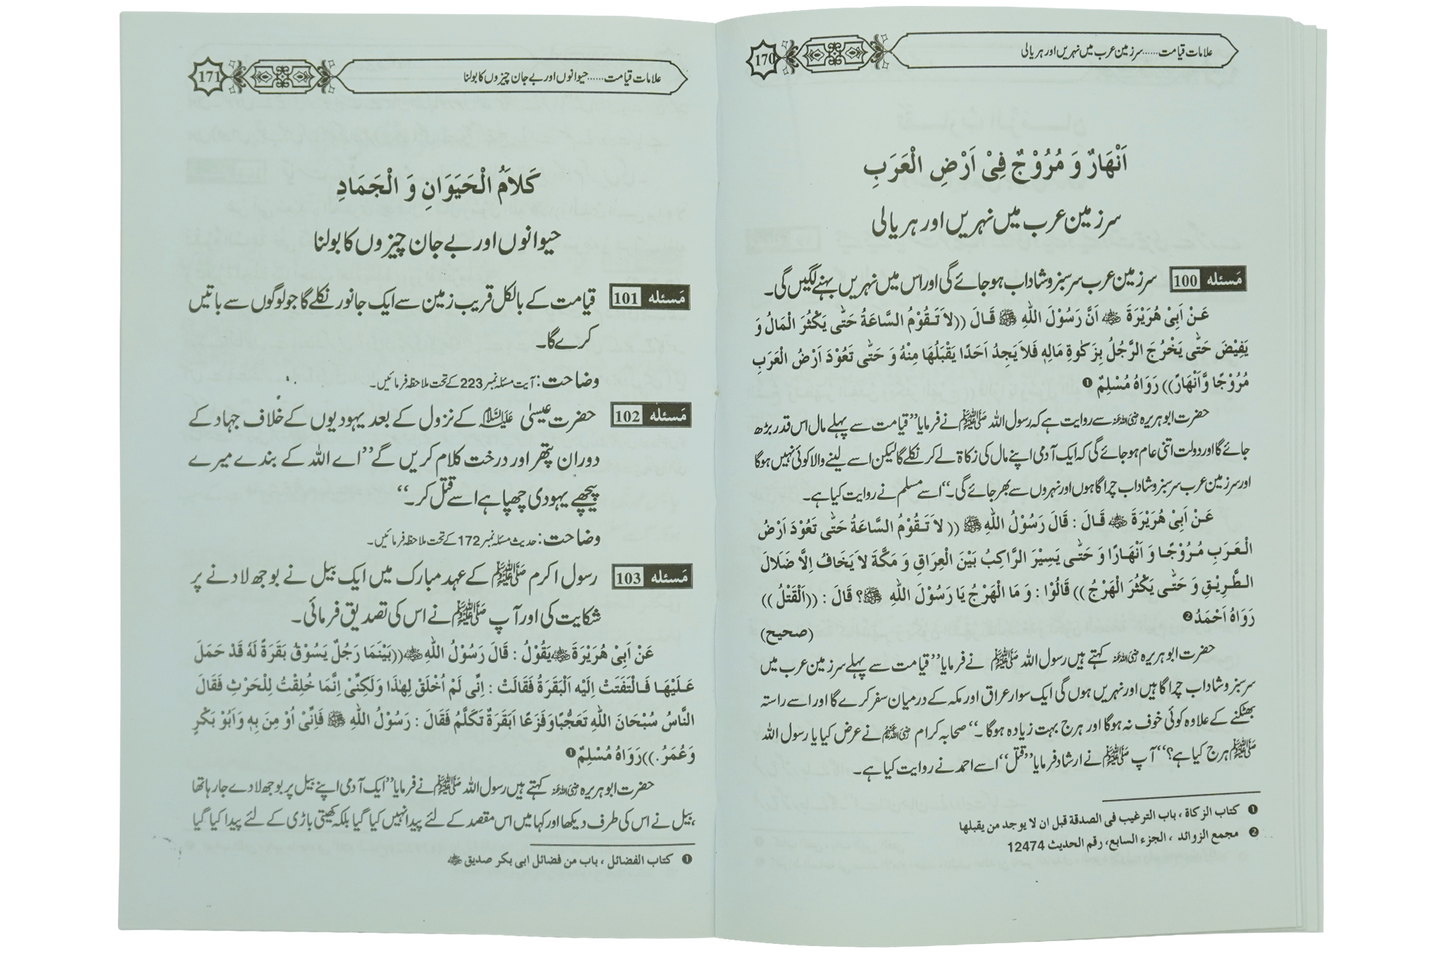 170
علامات قیامت ...... سرزمین عرب میں نہریں اور ہریالی
اَنْهَارٌ وَ مُرُوْجٌ فِیْ اَرْضِ الْعَرَبِ
سرزمین عرب میں نہریں اور ہریالی
مَسئله 100 سرزمین عرب سرسبز وشاداب ہوجائے گی اور اس میں نہریں بہنے لگیں گی۔
عَنْ اَبِیْ هُرَيْرَةَ ﷜ اَنَّ رَسُوْلَ اللّٰهِ ﷺ قَالَ ((لاَ تَقُوْمُ السَّاعَةُ حَتّٰى يَكْثُرَ الْمَالُ وَ
يَفِيْضَ حَتّٰى يَخْرُجَ الرَّجُلُ بِزَكٰوةِ مَالِهٖ فَلاَ يَجِدُ اَحَدًا يَقْبَلُهَا مِنْهُ وَ حَتّٰى تَعُوْدَ اَرْضُ الْعَرَبِ
مُرُوْجًا وَّاَنْهَارً)) رَوَاهُ مُسْلِمٌ ❶
حضرت ابو ہریرہ ﷜ سے روایت ہے کہ رسول اللہ ﷺ نے فرمایا ”قیامت سے پہلے مال اس قدر بڑھ
جائے گا اور دولت اتنی عام ہوجائے گی کہ ایک آدمی اپنے مال کی زکاۃ لے کر نکلے گا لیکن اسے لینے والا کوئی نہیں ہوگا
اور سرزمین عرب سرسبز وشاداب چراگاہوں اور نہروں سے بھر جائے گی۔“ اسے مسلم نے روایت کیا ہے۔
عَنْ اَبِیْ هُرَيْرَةَ ﷜ قَالَ : قَالَ رَسُوْلُ اللّٰهِ ﷺ (( لاَ تَقُوْمُ السَّاعَةُ حَتّٰى تَعُوْدَ اَرْضُ
الْعَرَبِ مُرُوْجًا وَ اَنْهَارًا وَ حَتّٰى يَسِيْرَ الرَّاكِبُ بَيْنَ الْعِرَاقِ وَ مَكَّةَ لاَ يَخَافُ اِلَّا ضَلاَلَ
الطَّرِيْقِ وَ حَتّٰى يَكْثُرَ الْهَرْجُ )) قَالُوْا : وَ مَا الْهَرْجُ يَا رَسُوْلَ اللّٰهِ ﷺ؟ قَالَ : ((اَلْقَتْلُ ))
رَوَاهُ اَحْمَدُ❷ (صحيح)
حضرت ابو ہریرہ ﷜ کہتے ہیں رسول اللہ ﷺ نے فرمایا ”قیامت سے پہلے سرزمین عرب میں
سرسبز وشاداب چراگاہیں اور نہریں ہوں گی ایک سوار عراق اور مکہ کے درمیان سفر کرے گا اور اسے راستہ
بھٹکنے کے علاوہ کوئی خوف نہ ہوگا اور ہرج بہت زیادہ ہوگا ۔“ صحابہ کرام ﷡ نے عرض کیا یا رسول اللہ
ﷺ ہرج کیا ہے؟“ آپ ﷺ نے ارشاد فرمایا ”قتل“ اسے احمد نے روایت کیا ہے۔
❶ كتاب الزكاة ، باب الترغيب فى الصدقة قبل ان لا يوجد من يقبلها
❷ مجمع الزوائد ، الجزء السابع، رقم الحديث 12474
171
علامات قیامت ...... حیوانوں اور بے جان چیزوں کا بولنا
كَلاَمُ الْحَيَوَانِ وَ الْجَمَادِ
حیوانوں اور بے جان چیزوں کا بولنا
مَسئله 101 قیامت کے بالکل قریب زمین سے ایک جانور نکلے گا جو لوگوں سے باتیں
کرے گا۔
وضاحت : آیت مسئلہ نمبر 223 کے تحت ملاحظہ فرمائیں۔
مَسئله 102 حضرت عیسیٰ علیہ السلام کے نزول کے بعد یہودیوں کے خلاف جہاد کے
دوران پتھر اور درخت کلام کریں گے ”اے اللہ کے بندے میرے
پیچھے یہودی چھپا ہے اسے قتل کر۔“
وضاحت : حدیث مسئلہ نمبر 172 کے تحت ملاحظہ فرمائیں۔
مَسئله 103 رسول اکرم ﷺ کے عہد مبارک میں ایک بیل نے بوجھ لادنے پر
شکایت کی اور آپ ﷺ نے اس کی تصدیق فرمائی۔
عَنْ اَبِیْ هُرَيْرَةَ ﷜ يَقُوْلُ : قَالَ رَسُوْلُ اللّٰهِ ﷺ ((بَيْنَمَا رَجُلٌ يَسُوْقُ بَقَرَةً لَهٗ قَدْ حَمَلَ
عَلَيْهَا فَالْتَفَتَتْ اِلَيْهِ الْبَقَرَةُ فَقَالَتْ : اِنِّى لَمْ اُخْلَقْ لِهٰذَا وَلٰكِنِّىْ اِنَّمَا خُلِقْتُ لِلْحَرْثِ فَقَالَ
النَّاسُ سُبْحَانَ اللّٰهِ تَعَجُّبًا وَفَزَعًا اَبَقَرَةٌ تَكَلَّمُ فَقَالَ : رَسُوْلُ اللّٰهِ ﷺ فَاِنِّىْ اُوْ مِنَ بِهٖ وَاَبُوْ بَكْرٍ
وَعُمَرُ .))رَوَاهُ مُسْلِمٌ❶
حضرت ابو ہریرہ ﷜ کہتے ہیں رسول اللہ ﷺ نے فرمایا ”ایک آدمی اپنے بیل پر بوجھ لادے جارہا تھا
،بیل نے اس کی طرف دیکھا اور کہا میں اس مقصد کے لئے پیدا نہیں کیا گیا بلکہ کھیتی باڑی کے لئے پیدا کیا گیا
❶ كتاب الفضائل ، باب من فضائل ابى بكر صديق ﷜